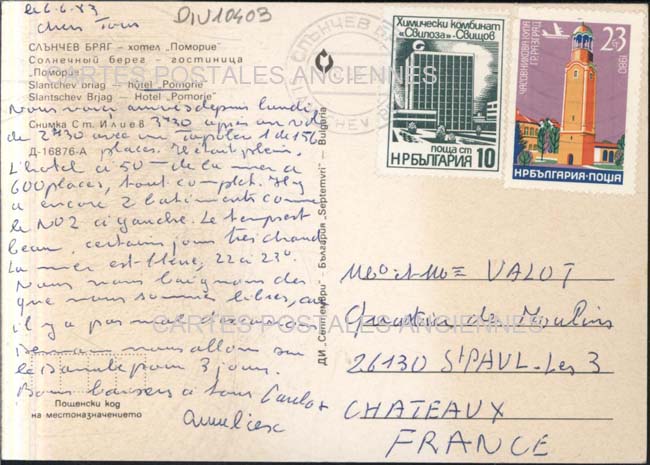 le 6.6.83
DIV10403
chers Tous
СЛЪНЧЕВ БРЯГ – хотел „Поморие“
Солнечный берег – гостиница
„Поморие“
Slantchev briag – hôtel "Pomorie"
Slantschev Brjag – Hotel "Pomorje"
Снимка Ст. Илиев
Д-16876-А
CARTES POSTALES ANCIENNES
Nous sommes arrivés depuis lundi
3h30 après un vol
de 2h30 avec un Tupolev
places. Il était plein.
L'hotel a 50m de la mer a
600 places, tout complet. Il y
a encore 2 batiments comme
le NO2 ci gauche. Le temps est
beau, certains jours très chaud
La mer est bleue, 22 a 23°.
Nous nous baignons dès
que nous sommes libres, car
il y a pas mal
Demain nous allons sur
le Danube pour 3 jours.
Bons baisers a tous
CARTES POSTALES ANCIENNES
Пощенски код
на местоназначението
ДИ „Септември“ – България „Septemvri“ – Bulgaria
СЛЪНЧЕВ БРЯГ
Химически комбинат
«Свилоза»-Свищов
поща ст
НР БЪЛГАРИЯ 10
23 ст
1980
ЧАСОВНИКОВА КУЛА
ГР. РАЗГРАД
НР БЪЛГАРИЯ·ПОЩА
Mr et Mme VALOT
Quartier de Moulins
26130 St PAUL-les 3
CHATEAUX
FRANCE